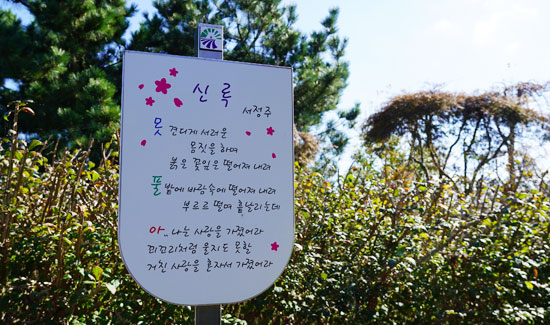 신록
서정주
못 견디게 서러운
몸짓을 하며
붉은 꽃잎은 떨어져 내려
풀 밭에 바람속에 떨어져 내려
부르르 떨며 흩날리는데
아.. 나는 사랑을 가졌어라
꾀꼬리처럼 울지도 못할
기찬 사랑을 혼자서 가졌어라